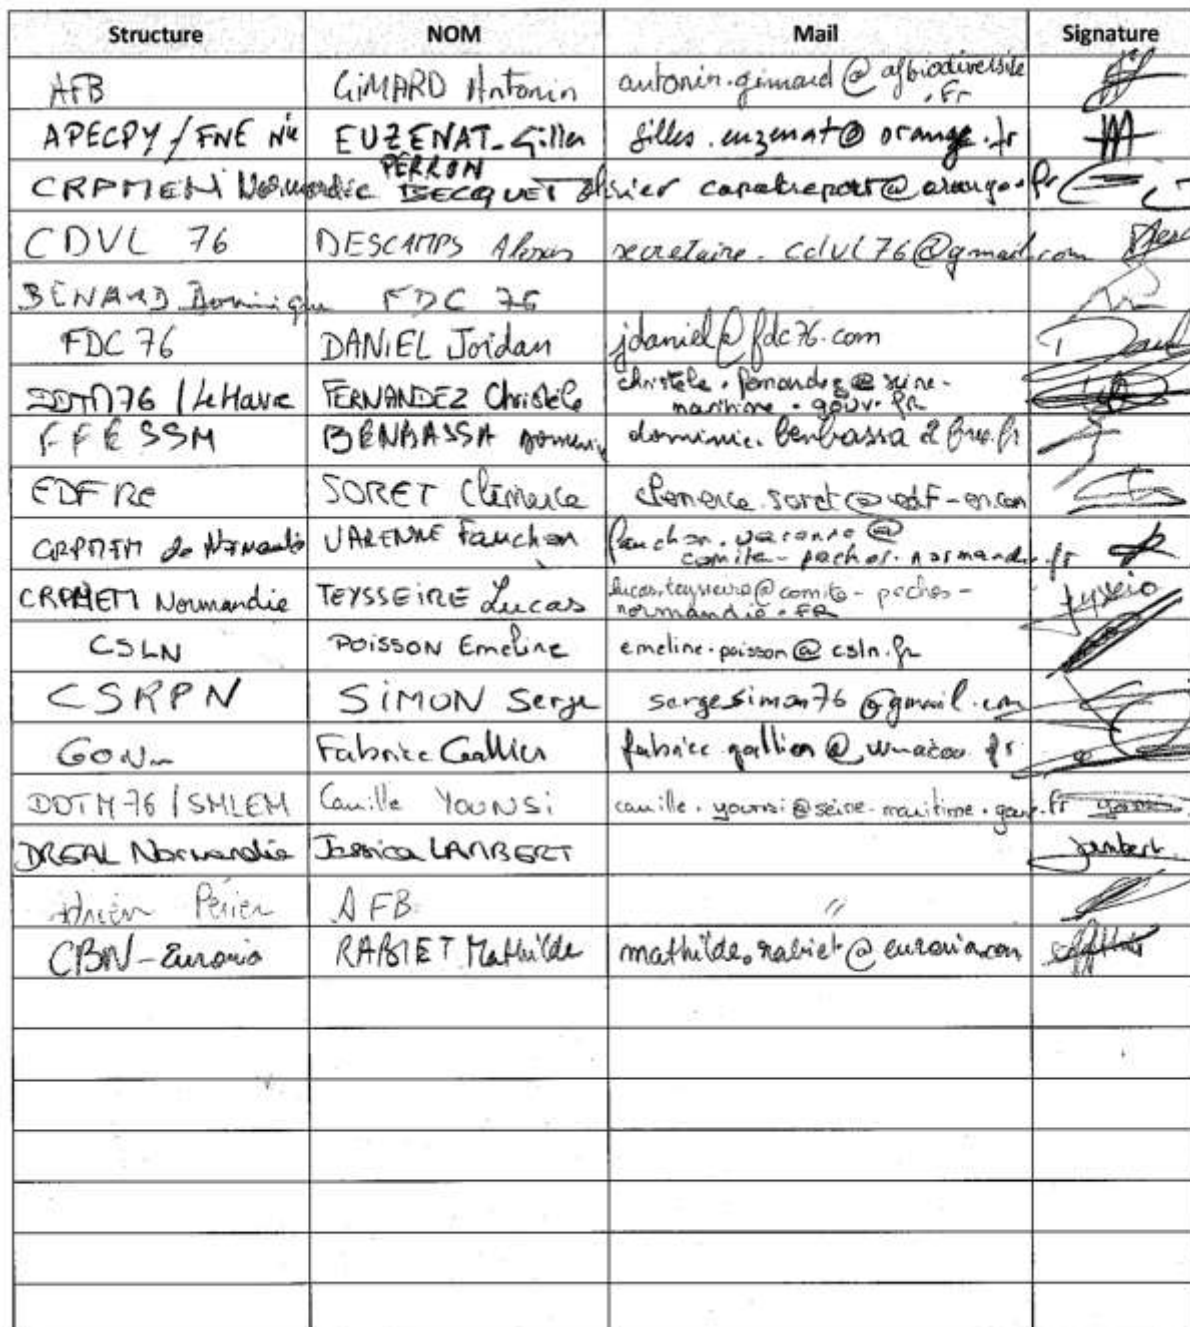 Structure NOM Mail Signature
AFB GiMARD Antonin antonin.gimard@afbiodiversite
.fr
APECPY / FNE Nie EUZENAT_Gilles gilles.euzenat@orange.fr
PERRON
CRPMEM Normandie BECQUET Olivier capaletreport@orange.fr
CDVL 76 DESCAMPS Alexis secretaire.cdvl76@gmail.com
BENARD Dominique FDC 76
FDC 76 DANiEL Jordan jdaniel@fdc76.com
DDTM76 / Le Havre FERNANDEZ Christèle christele.fernandez@seine-
maritime.gouv.fr
FFESSM BENBASSA dominic.benbassa
EDF RE SORET Clémence clemence.soret@edf-en.com
CRPMEM de Normandie VARENNE Fanchon fanchon.varenne@
comite-peches-normandie.fr
CRPMEM Normandie TEYSSEIRE Lucas lucas.teysseire@comite-peches-
normandie.FR
CSLN POISSON Emeline emeline.poisson@csln.fr
CSRPN SiMON Serge sergesimon76@gmail.com
GONm Fabrice Gallien fabrice.gallien@wanadoo.fr
DDTM76 / SMLEM Camille YOUNSi camille.younsi@seine-maritime.gouv.fr
DREAL Normandie Jessica LAMBERT Lambert
Adrien Périer AFB "
CBW-Eurovia RABIET Mathilde mathilde.rabiet@eurovia.com